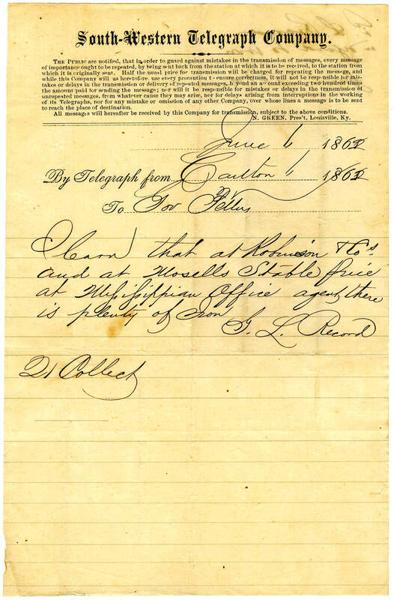 South-Western Telegraph Company.
THE PUBLIC are notified, that in order to guard against mistakes in the transmission of messages, every message
of importance ought to be repeated, by being sent back from the station at which it is to be received, to the station from
which it is originally sent. Half the usual price for transmission will be charged for repeating the message, and
while this Company will as heretofore, use every precaution to ensure correctness, it will not be responsible for mis-
takes or delays in the transmission or delivery of repeated messages, beyond an amount exceeding two hundred times
the amount paid for sending the message; nor will it be responsible for mistakes or delays in the transmission of
unrepeated messages, from whatever cause they may arise, nor for delays arising from interruptions in the working
of its Telegraphs, nor for any mistake or omission of any other Company, over whose lines a message is to be sent
to reach the place of destination.
All messages will hereafter be received by this Company for transmission, subject to the above conditions.
N. GREEN, Pres't, Louisville, Ky.
June 6, 1862
By Telegraph from Canton 6, 1862
To Gov Pettus
I learn that at Robinson & Co's
and at Stable
at Mississippian Office agent there
is plenty of Iron
J. L. Record
21 Collect